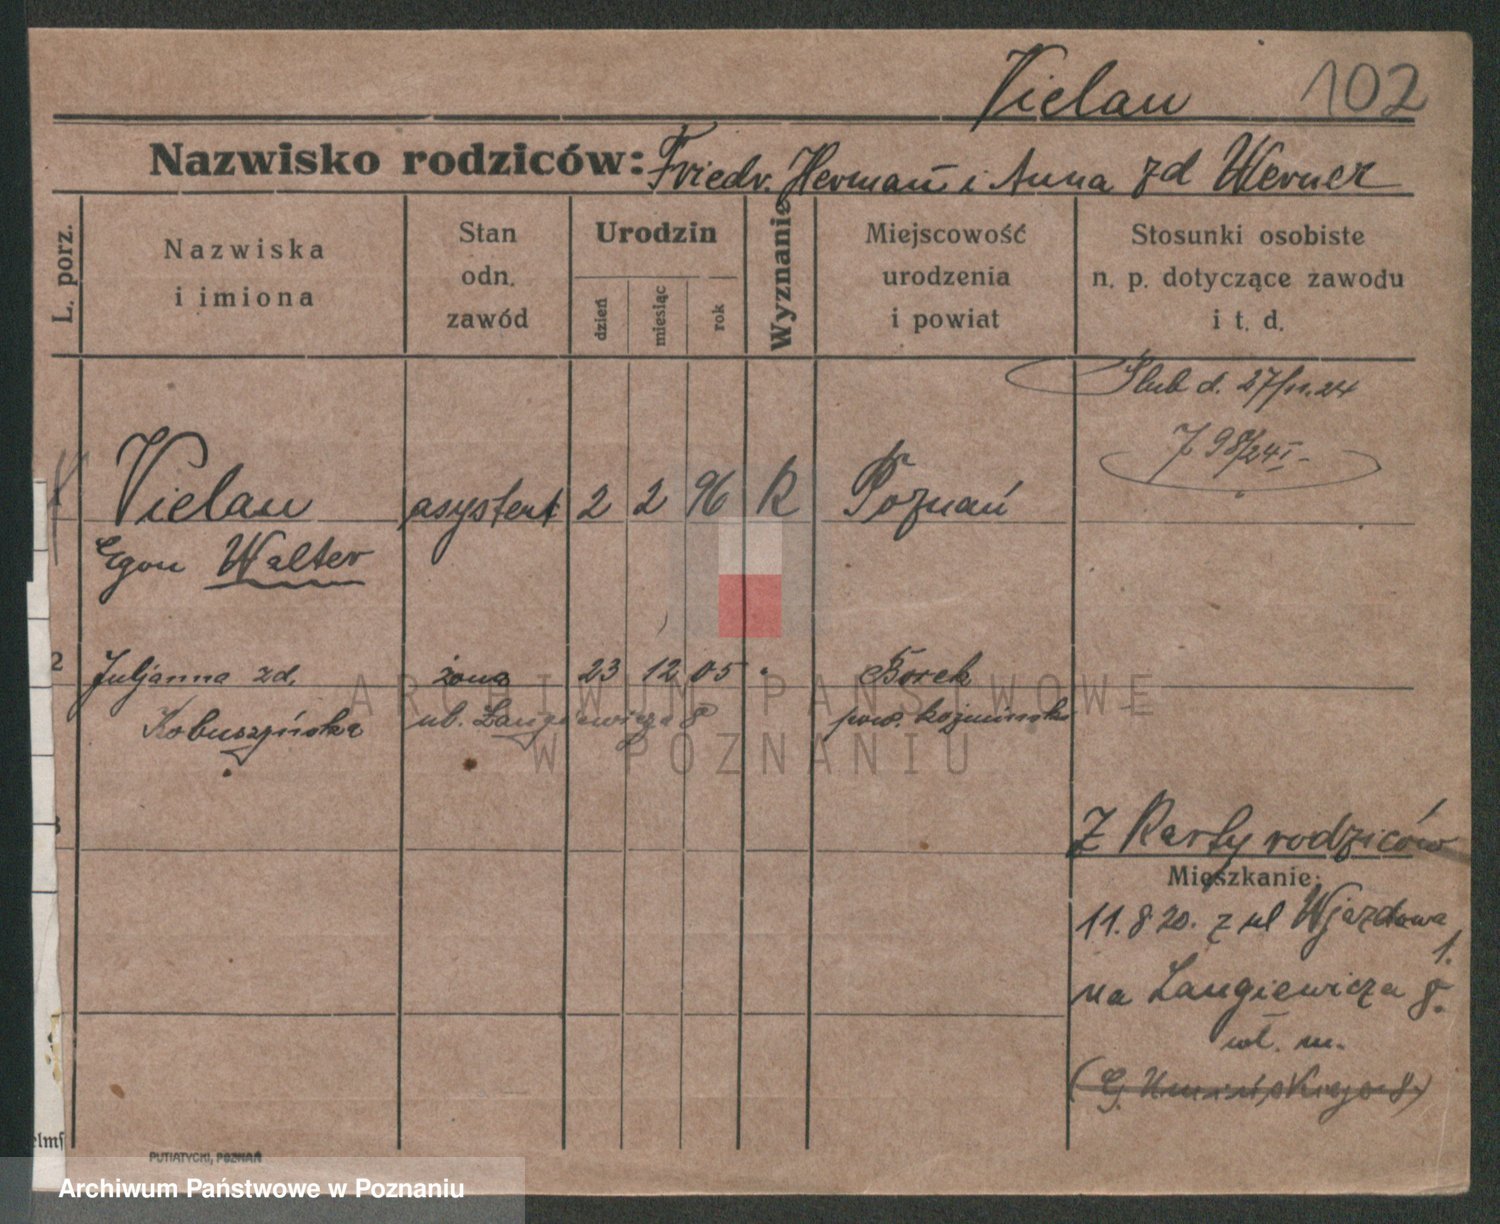 Vielau 102
Nazwisko rodziców: Friedr. Herman i Anna zd Werner
L. porz.
Nazwiska
i imiona
Stan
odn.
zawód
Urodzin
dzień
miesiąc
rok
Wyznanie
Miejscowość
urodzenia
i powiat
Stosunki osobiste
n. p. dotyczące zawodu
i t. d.
Ślub d. 27/11.24
98/24 I
Vielau asystent 2 2 96 R Poznań
Egon Walter
2 Juljanna zd. żona 23 12 05 " Borek
Kobuszyńska ul. Langiewicza 8 pow. koźmiński
ARCHIWUM PAŃSTWOWE
W POZNANIU
3
Z Karty rodziców
Mieszkanie:
11.8 20. z ul Wjazdowa
1.
na Langiewicza 8.
wł. m.
elmſ
PUTIATYCKI, POZNAŃ
Archiwum Państwowe w Poznaniu